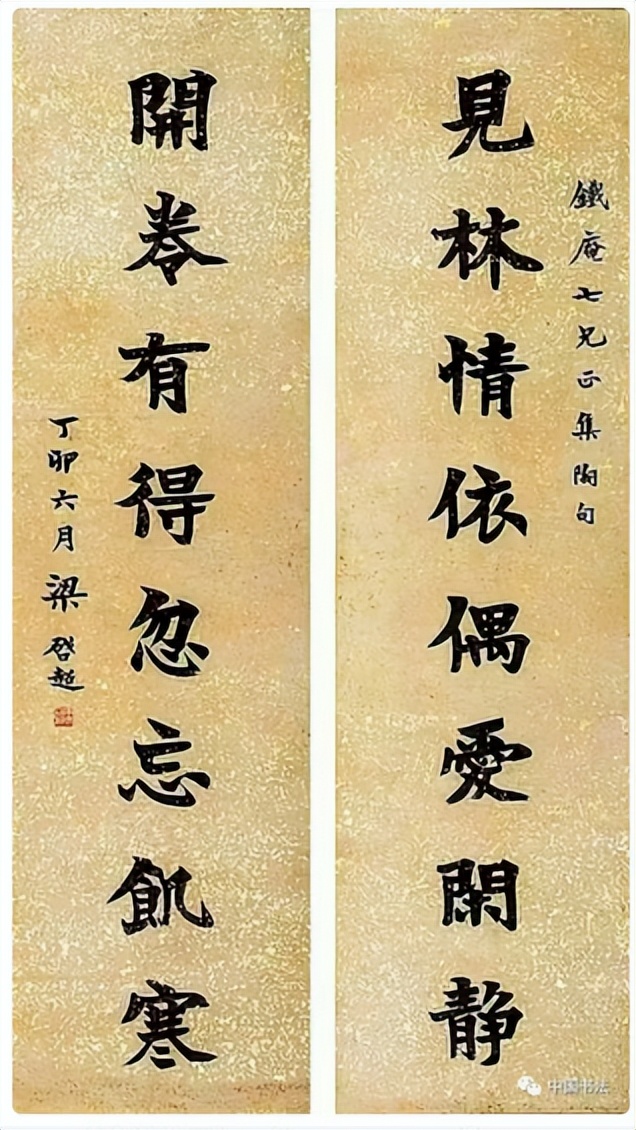 鐵庵七兄正集陶句
見林情依偶愛閑静
開卷有得忽忘飢寒
丁卯六月梁啓超
中国书法